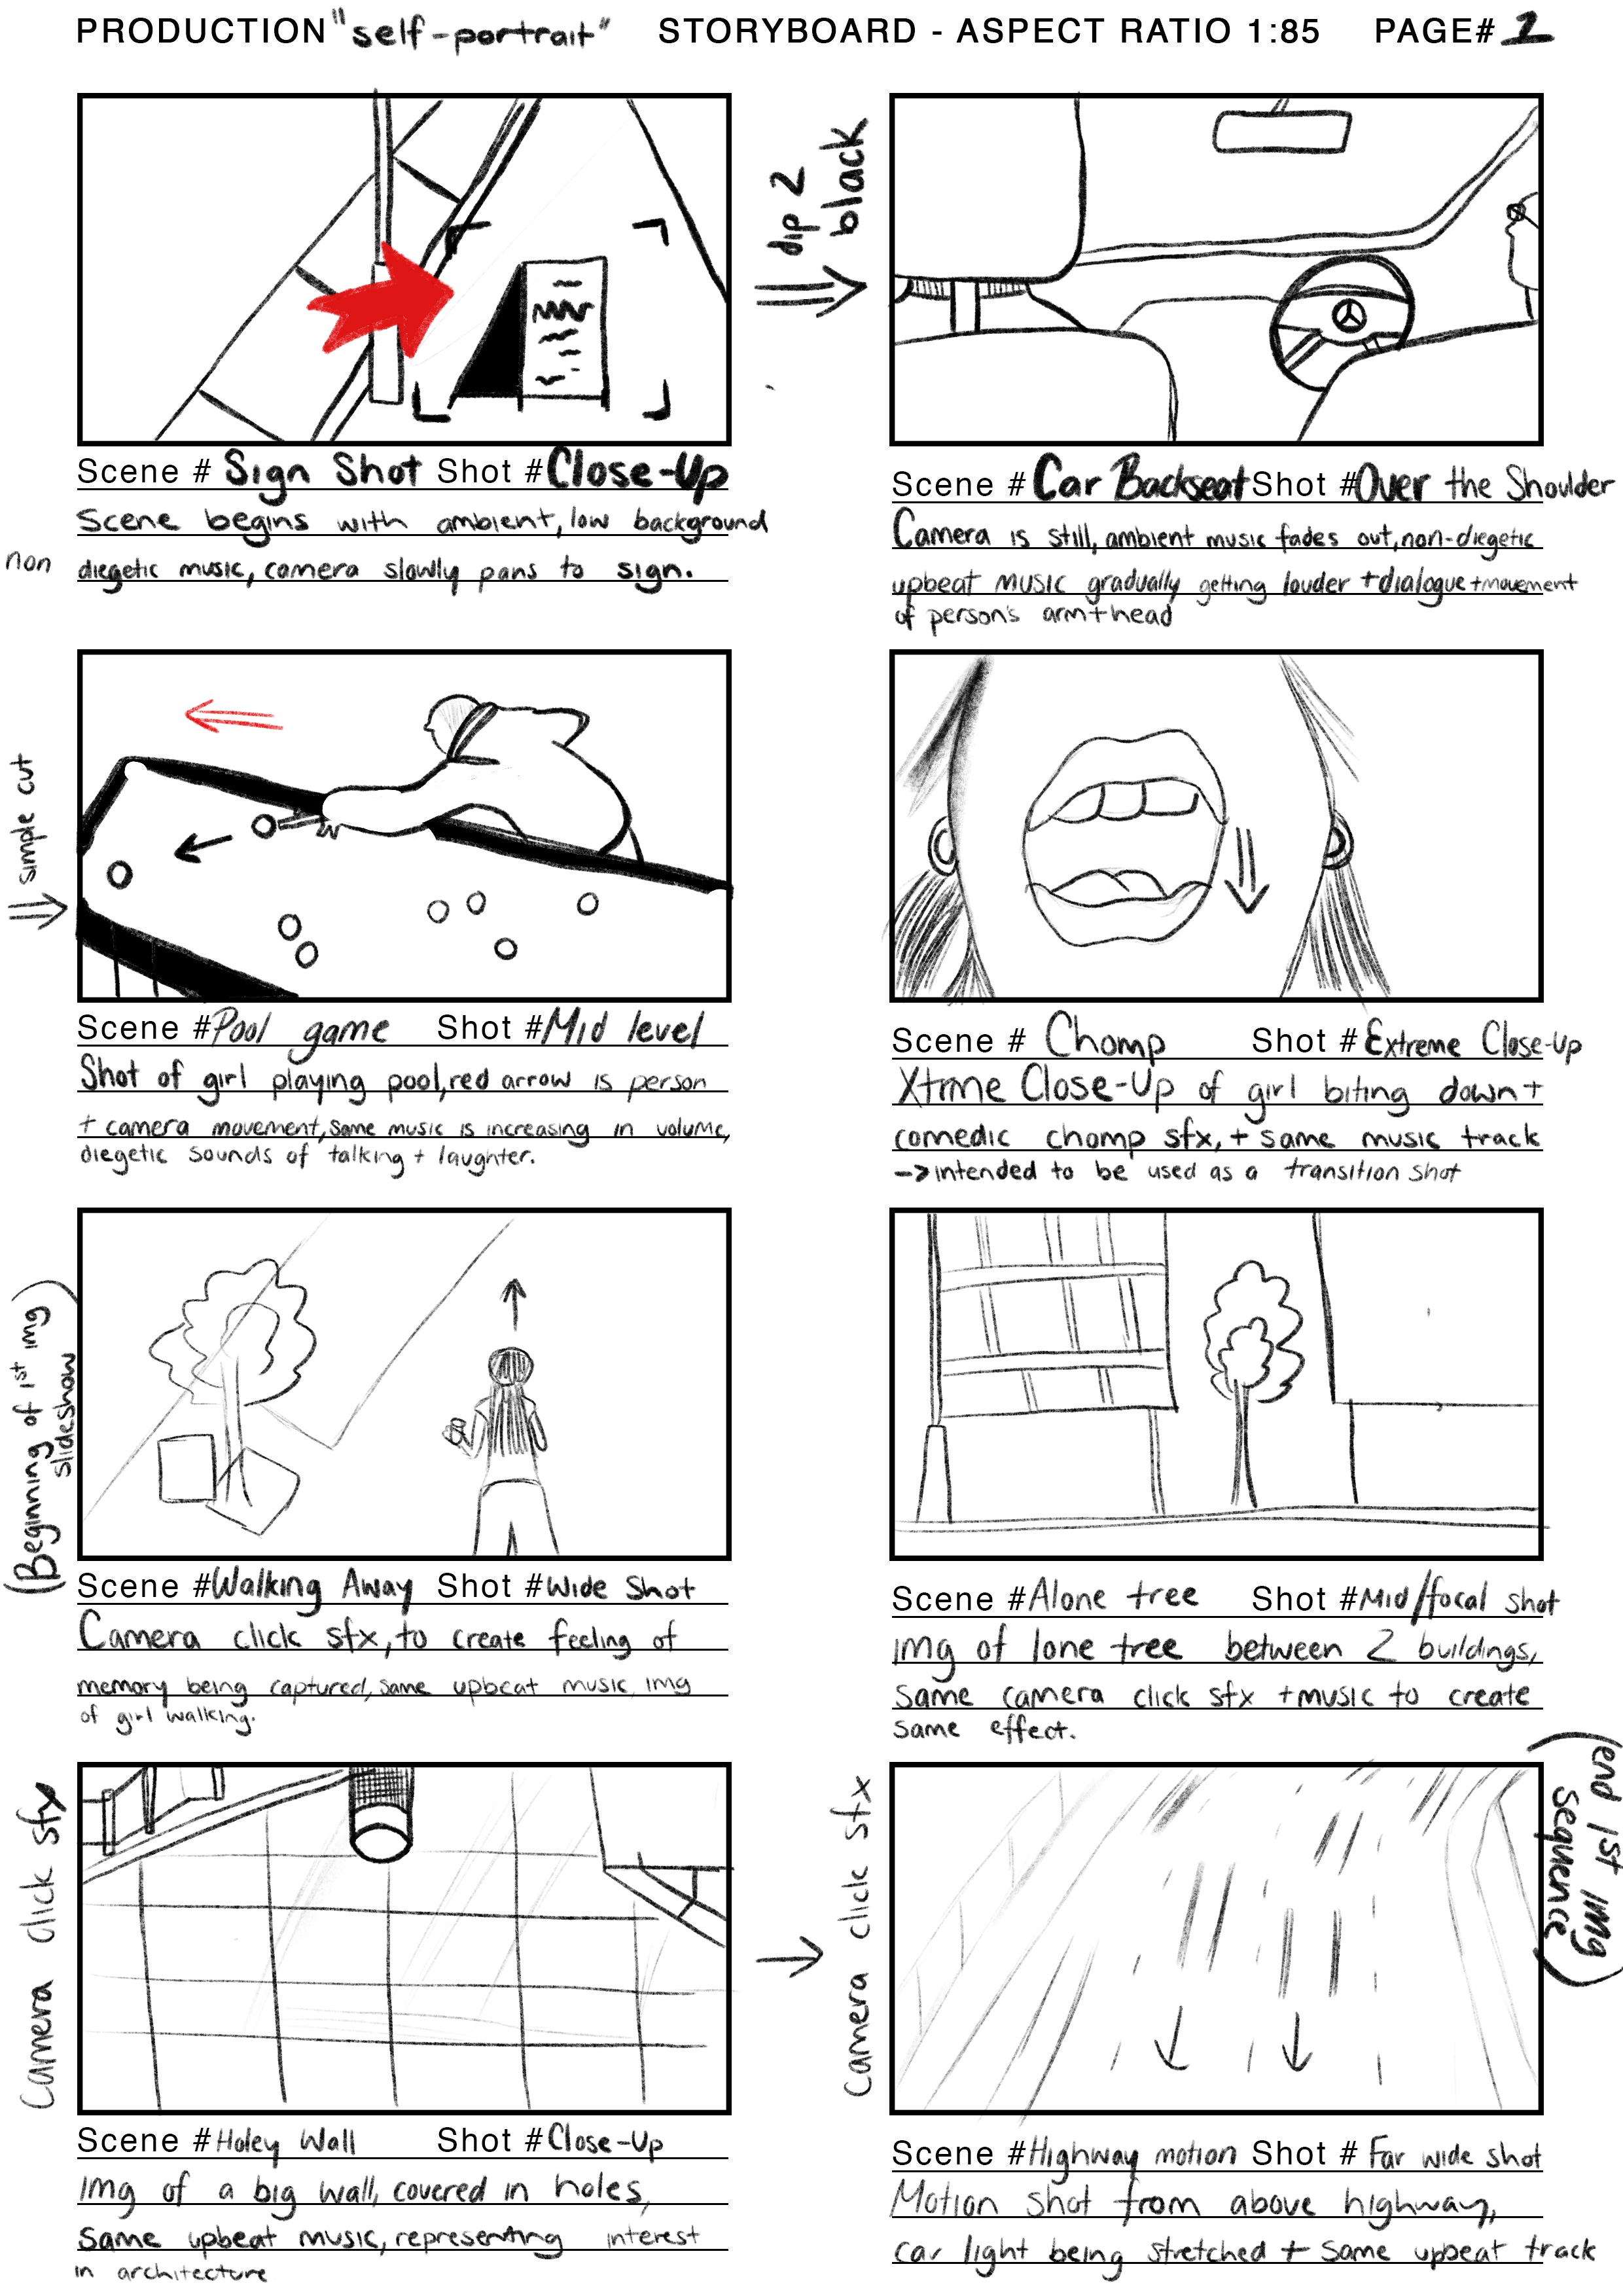 PRODUCTION "self-portrait" STORYBOARD - ASPECT RATIO 1:85 PAGE# 1
dip 2
black
Scene # Sign Shot Shot # Close-Up
Scene begins with ambient, low background
non diegetic music, camera slowly pans to sign.
Scene # Car Backseat Shot # Over the Shoulder
Camera is still, ambient music fades out, non-diegetic
upbeat music gradually getting louder + dialogue + movement
of person's arm + head
simple cut
Scene # Pool game Shot # Mid level
Shot of girl playing pool, red arrow is person
+ camera movement, same music is increasing in volume,
diegetic sounds of talking + laughter.
Scene # Chomp Shot # Extreme Close-Up
Xtrme Close-Up of girl biting down +
comedic chomp sfx, + same music track
-> intended to be used as a transition shot
(Beginning of 1st img)
slideshow
Scene # Walking Away Shot # Wide Shot
Camera click sfx, to create feeling of
memory being captured, same upbeat music, img
of girl walking.
Scene # Alone tree Shot # Mid/focal shot
img of lone tree between 2 buildings,
same camera click sfx + music to create
same effect.
Camera click sfx
Scene # Holey Wall Shot # Close-Up
img of a big wall, covered in holes,
same upbeat music, representing interest
in architecture
Camera click sfx
(end 1st img
sequence)
Scene # Highway motion Shot # Far wide shot
Motion shot from above highway,
car light being stretched + same upbeat track